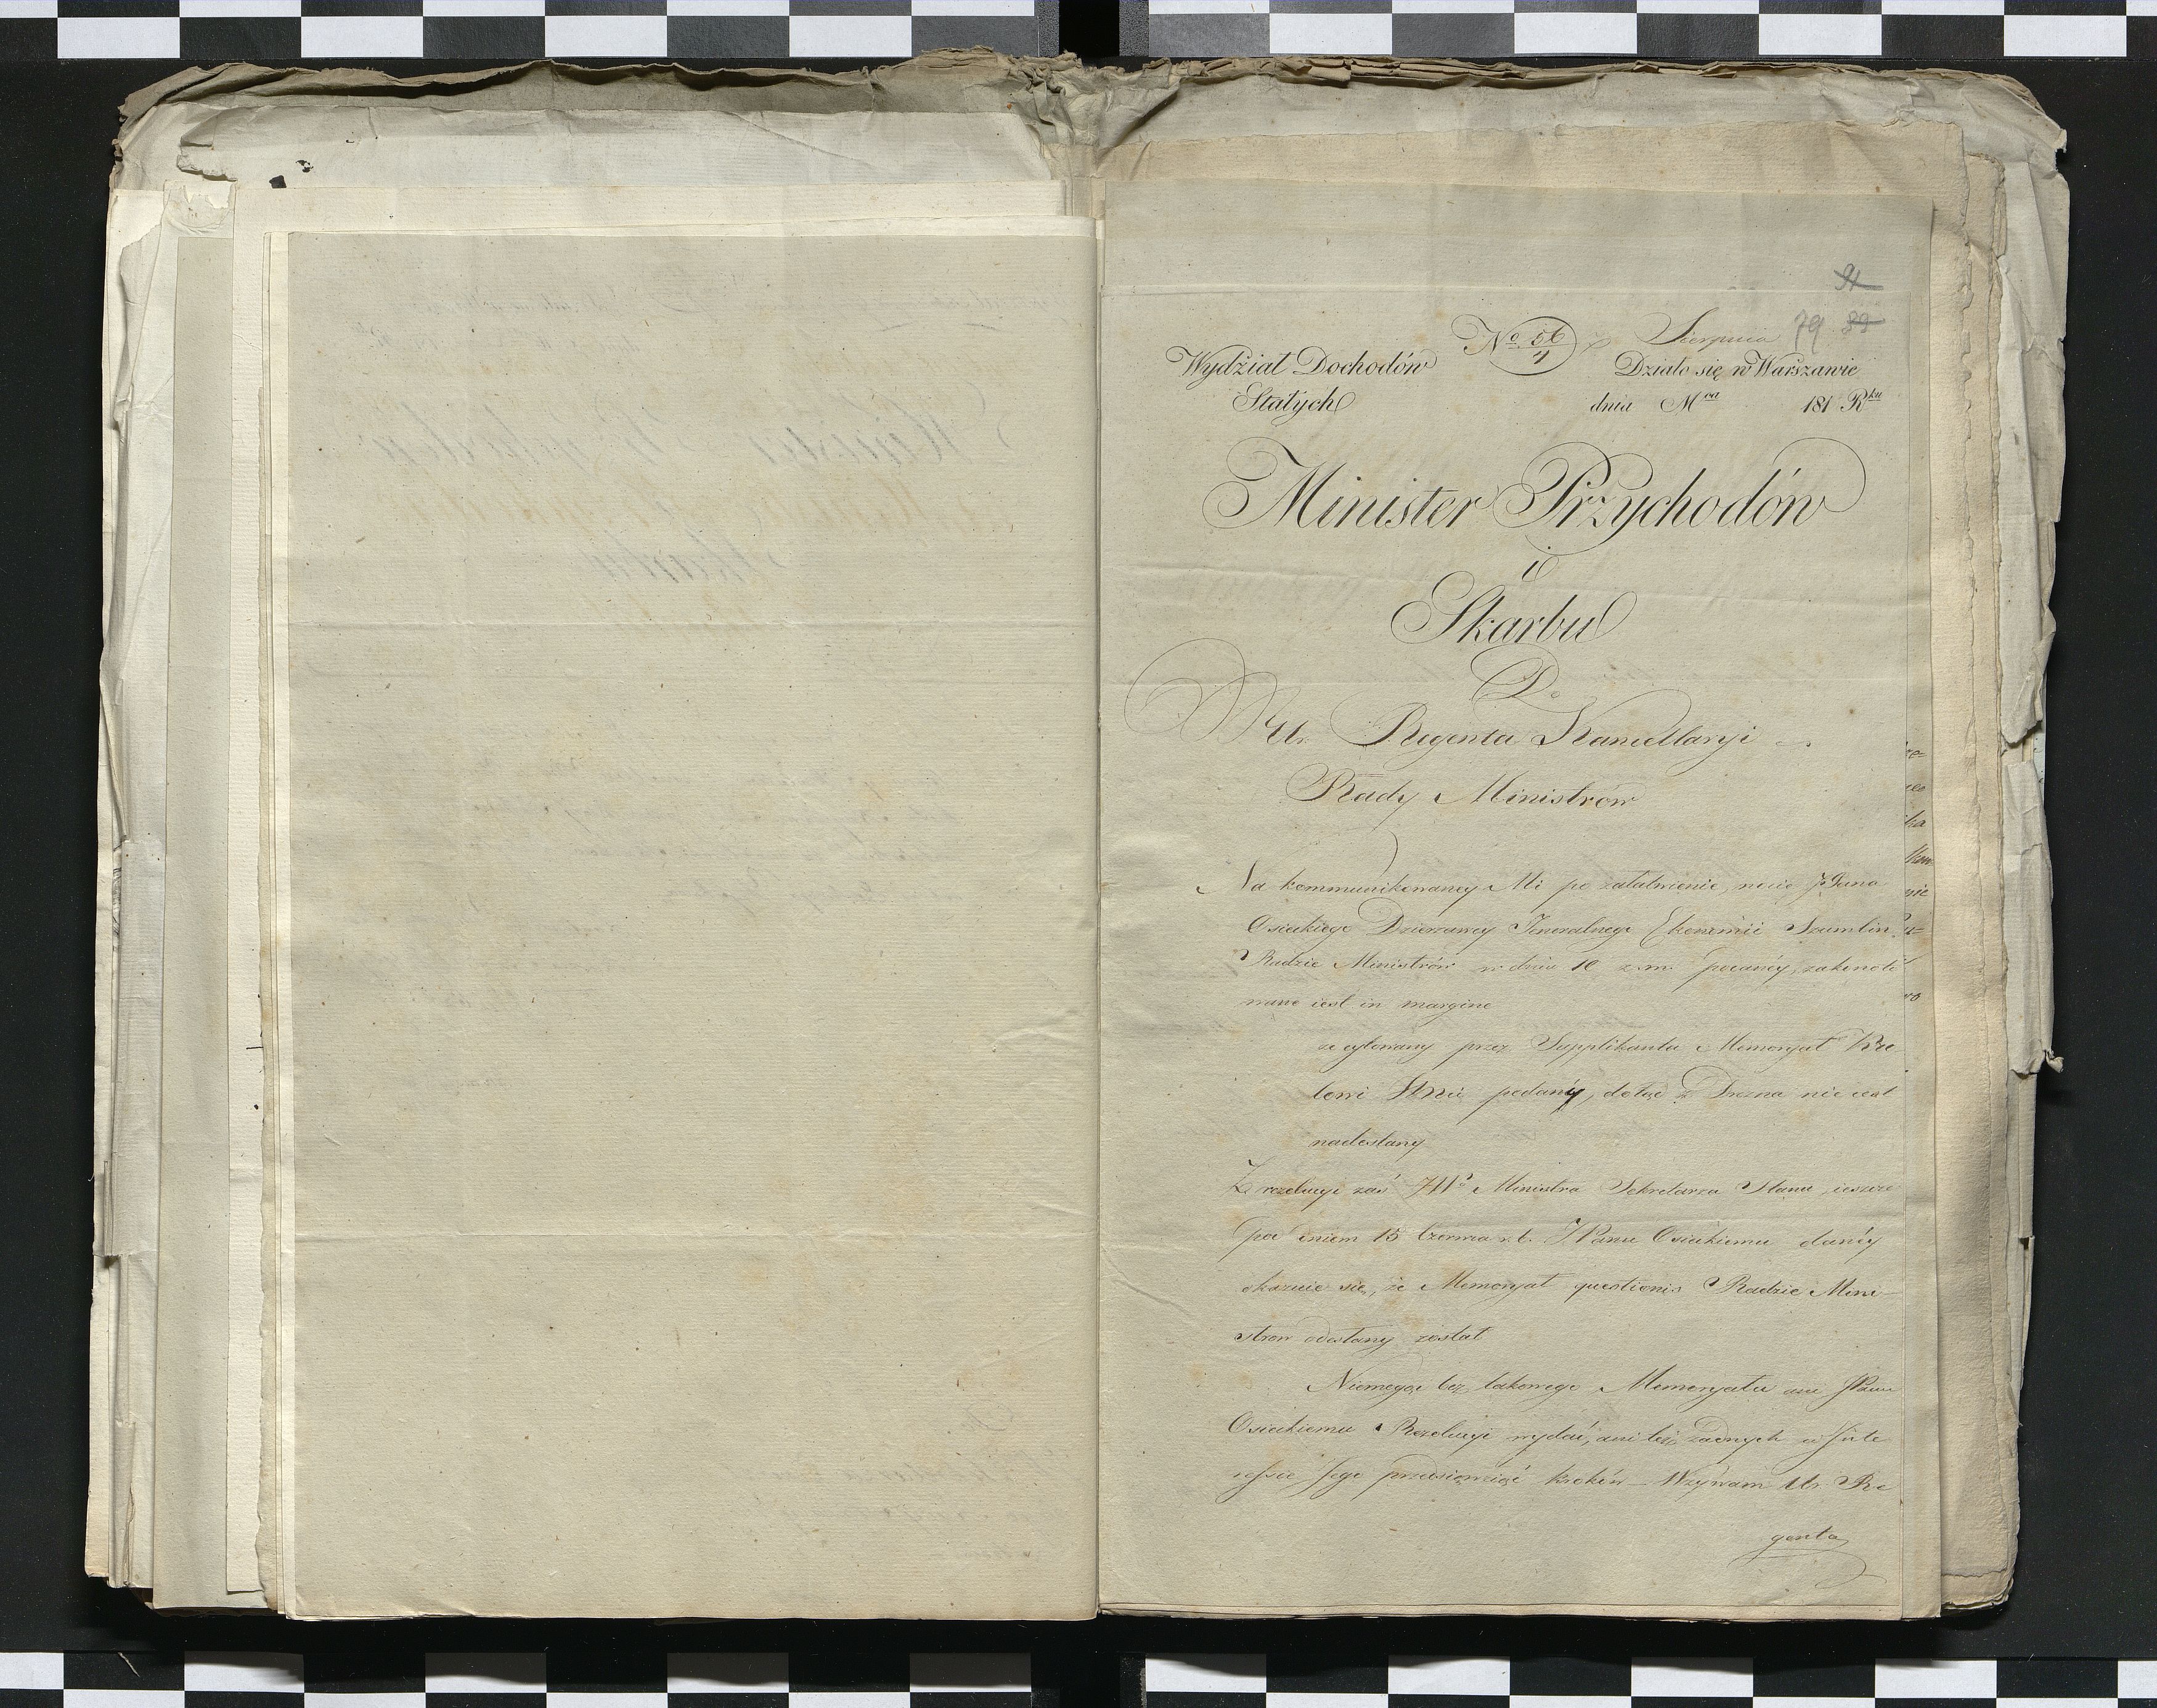 91
79 89
Sierpnia
Wydział Dochodów
Stałych
No 56
4
Działo się w Warszawie
dnia Mca 181 Rku
Minister Przychodów
i
Skarbu
Do
Ur. Regenta Kancellaryi
Rady Ministrów
Na kommunikowaney Mi po załatwienie, nocie JPana
Osieckiego Dzierzawcy Jeneralnego Ekonomii Szumlin
Radzie Ministrów w dniu 10 z. m. podanéy, zakonoto
wano iest in margine
że cytowany przez Supplikanta Memoryał Kró-
lowi podany, dotąd z Drezna nie iest
nadesłany
Z rezolucyi zaś JWo Ministra Sekretarza Stanu ieszcze
pod dniem 15 Czerwca r. b. JPanu Osieckiemu danéy
okazuie się, że Memoryał questionis Radzie Mini-
strow odesłany został
Niemogąc bez takowego Memoryału ani JPanu
Osieckiemu Rezolucyi wydać, ani też żadnych w Jnte
ressie Jego przedsięwziąć kroków – Wzywam Ur. Re
genta